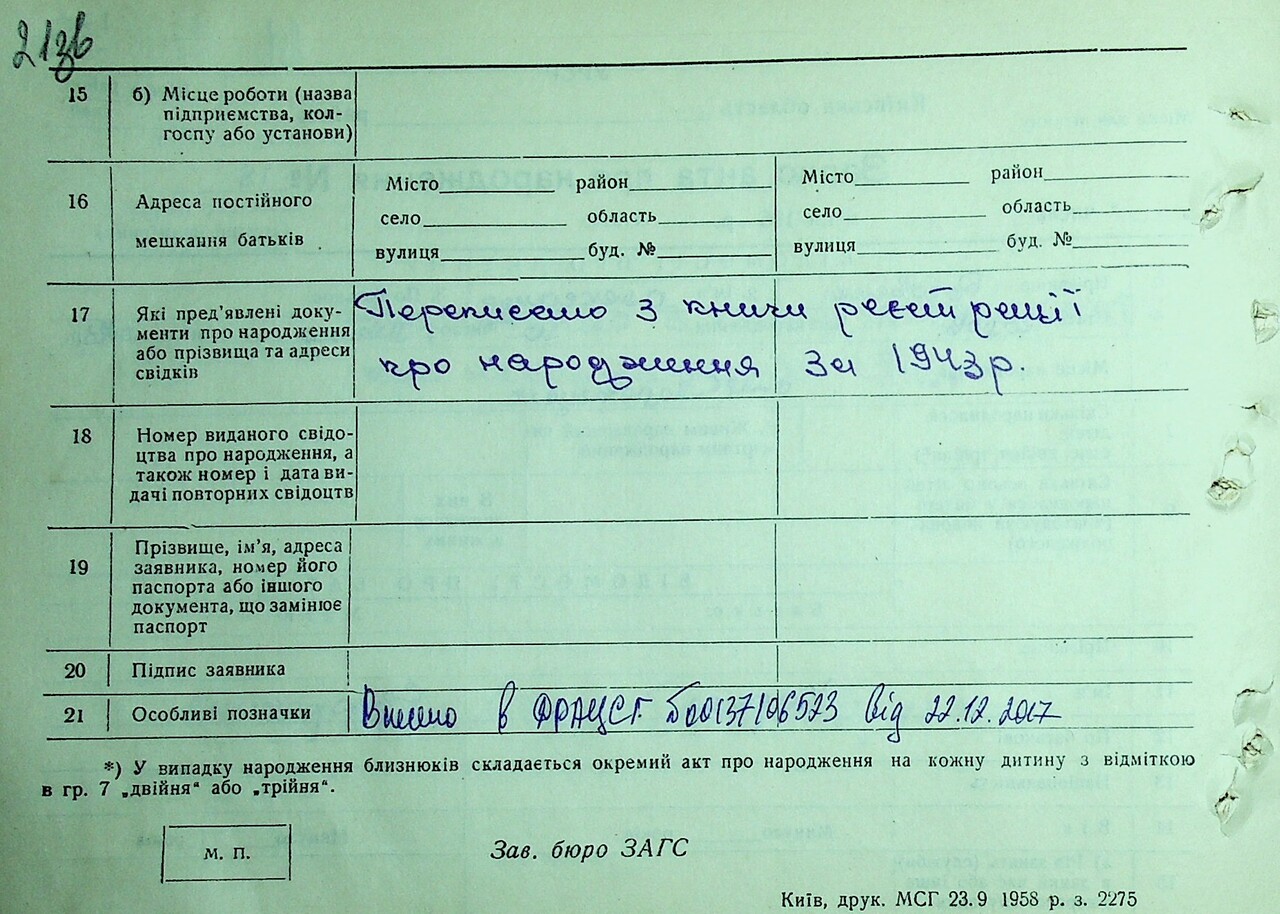 21зв
15 б) Місце роботи (назва
підприємства, кол-
госпу або установи)
16 Адреса постійного
мешкання батьків
Місто район
село область
вулиця буд. №
Місто район
село область
вулиця буд. №
17 Які пред’явлені доку-
менти про народження
або прізвища та адреси
свідків
Переписано з книги реєстрації
про народження за 1943р.
18 Номер виданого свідо-
цтва про народження, а
також номер і дата ви-
дачі повторних свідоцтв
19 Прізвище, ім’я, адреса
заявника, номер його
паспорта або іншого
документа, що замінює
паспорт
20 Підпис заявника
21 Особливі позначки Внесено в ДРАЦСГ 00137106523 від 22.12.2017
*) У випадку народження близнюків складається окремий акт про народження на кожну дитину з відміткою
в гр. 7 „двійня“ або „трійня“.
М. П.
Зав. бюро ЗАГС
Київ, друк. МСГ 23.9 1958 р. з. 2275